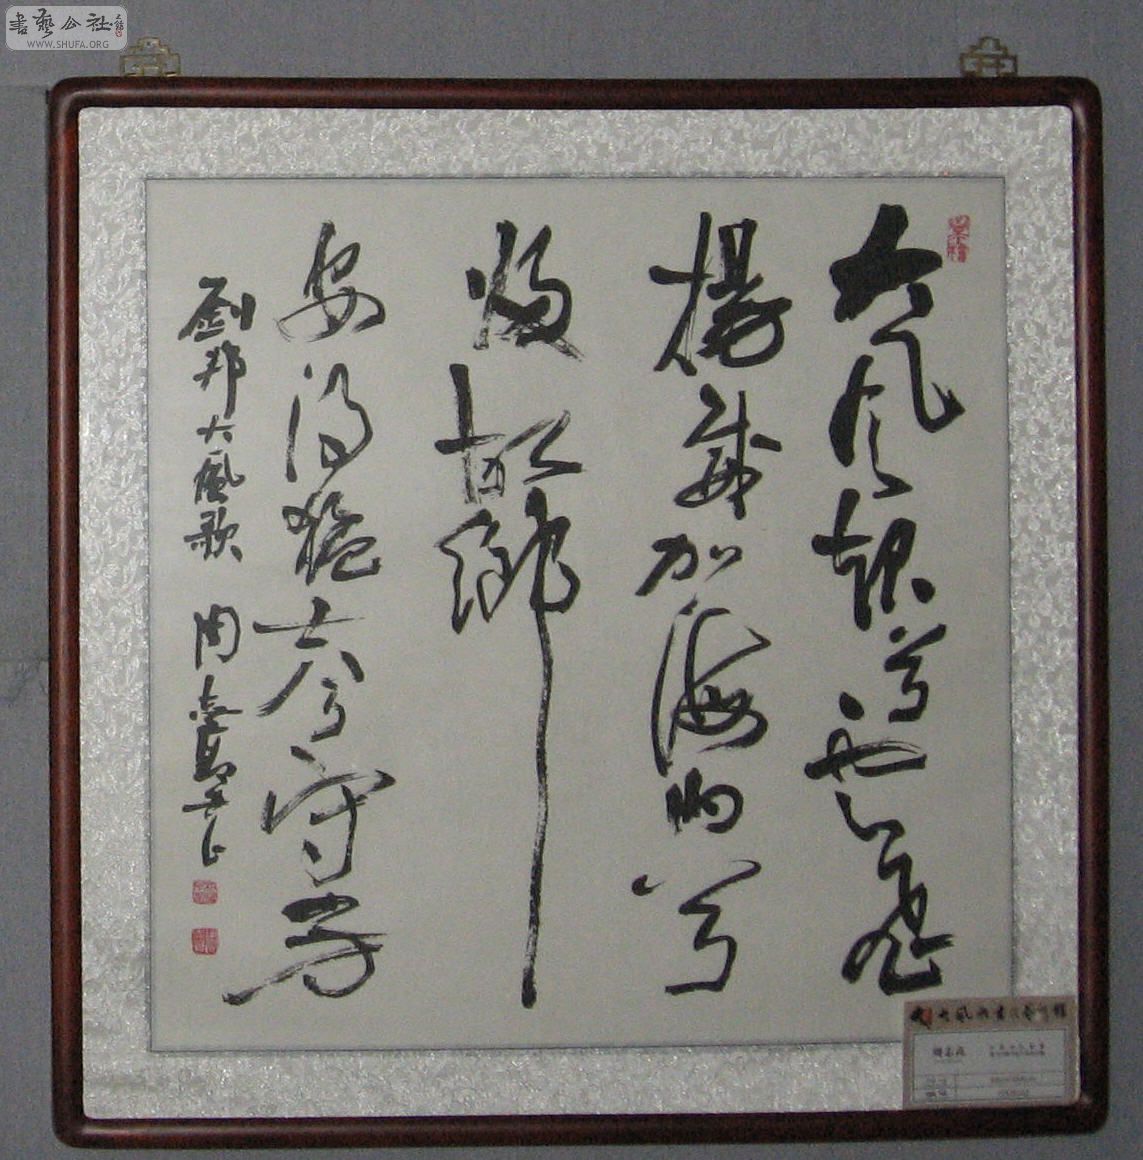 書藝公社
WWW.SHUFA.ORG
大风起兮雲飛
揚威加海内兮
歸故鄉
安得猛士兮守四方
劉邦大風歌 周志高書
周志高